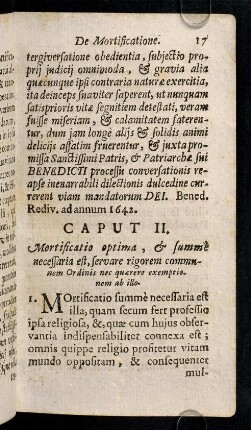 De Mortificatione. 17
tergiversatione obedientia, subjectio pro-
prij judicij omnimoda, & gravia alia
quæcunque ipsi contraria naturæ exercitia,
ita deinceps suaviter saperent, ut nunquam
satis prioris vitæ segnitiem detestati, veram
fuisse miseriam, & calamitatem faterentur,
dum jam longè alijs & solidis animi
delicijs assatim fruerentur, & juxta pro-
missa Sanctissimi Patris, & Patriarchæ sui
BENEDICTI processu conversationis re-
apse inenarrabili dilectionis dulcedine cur-
rerent viam mandatorum DEI. Bened.
Rediv. ad annum 1642.
CAPUT II.
Mortificatio optima, & summè
necessaria est, servare rigorem commu-
nem Ordinis nec quærere exemptio-
nem ab illo.
1. MOrtificatio summè necessaria est
illa, quam secum fert professio
ipsa religiosa, &, quæ cum hujus obser-
vantia indispensabiliter connexa est
omnis quippe religio profitetur vitam
mundo oppositam, & consequenter
mul-